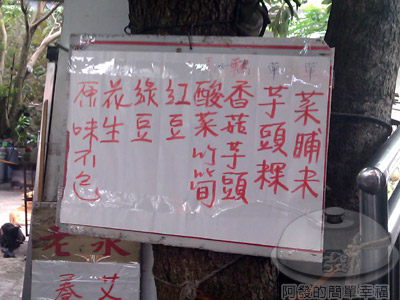 菜脯米
芋頭粿
香菇芋頭
酸菜竹筍
紅豆
綠豆
花生
原味不包
艾
老永
阿發的簡單幸福